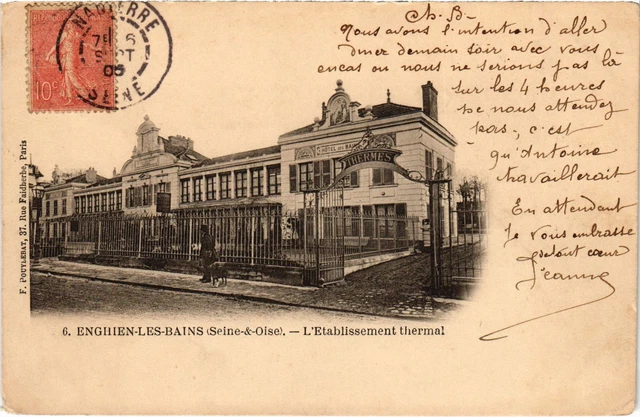 Ch. B-
Nous avons l'intention d'aller
diner demain soir avec vous
encas ou nous ne serions pas là
sur les 4 heures
ne nous attendez
pas, c'est
qu'Antoine
travaillerait
En attendant
Je vous embrasse
de tout cœur
Jeanne
NANTERRE
SEINE
05
10c
HOTEL DES BAINS
THERMES
F. POUYDEBAT, 37, Rue Faidherbe, Paris
6. ENGHIEN-LES-BAINS (Seine-&-Oise). — L'Etablissement thermal